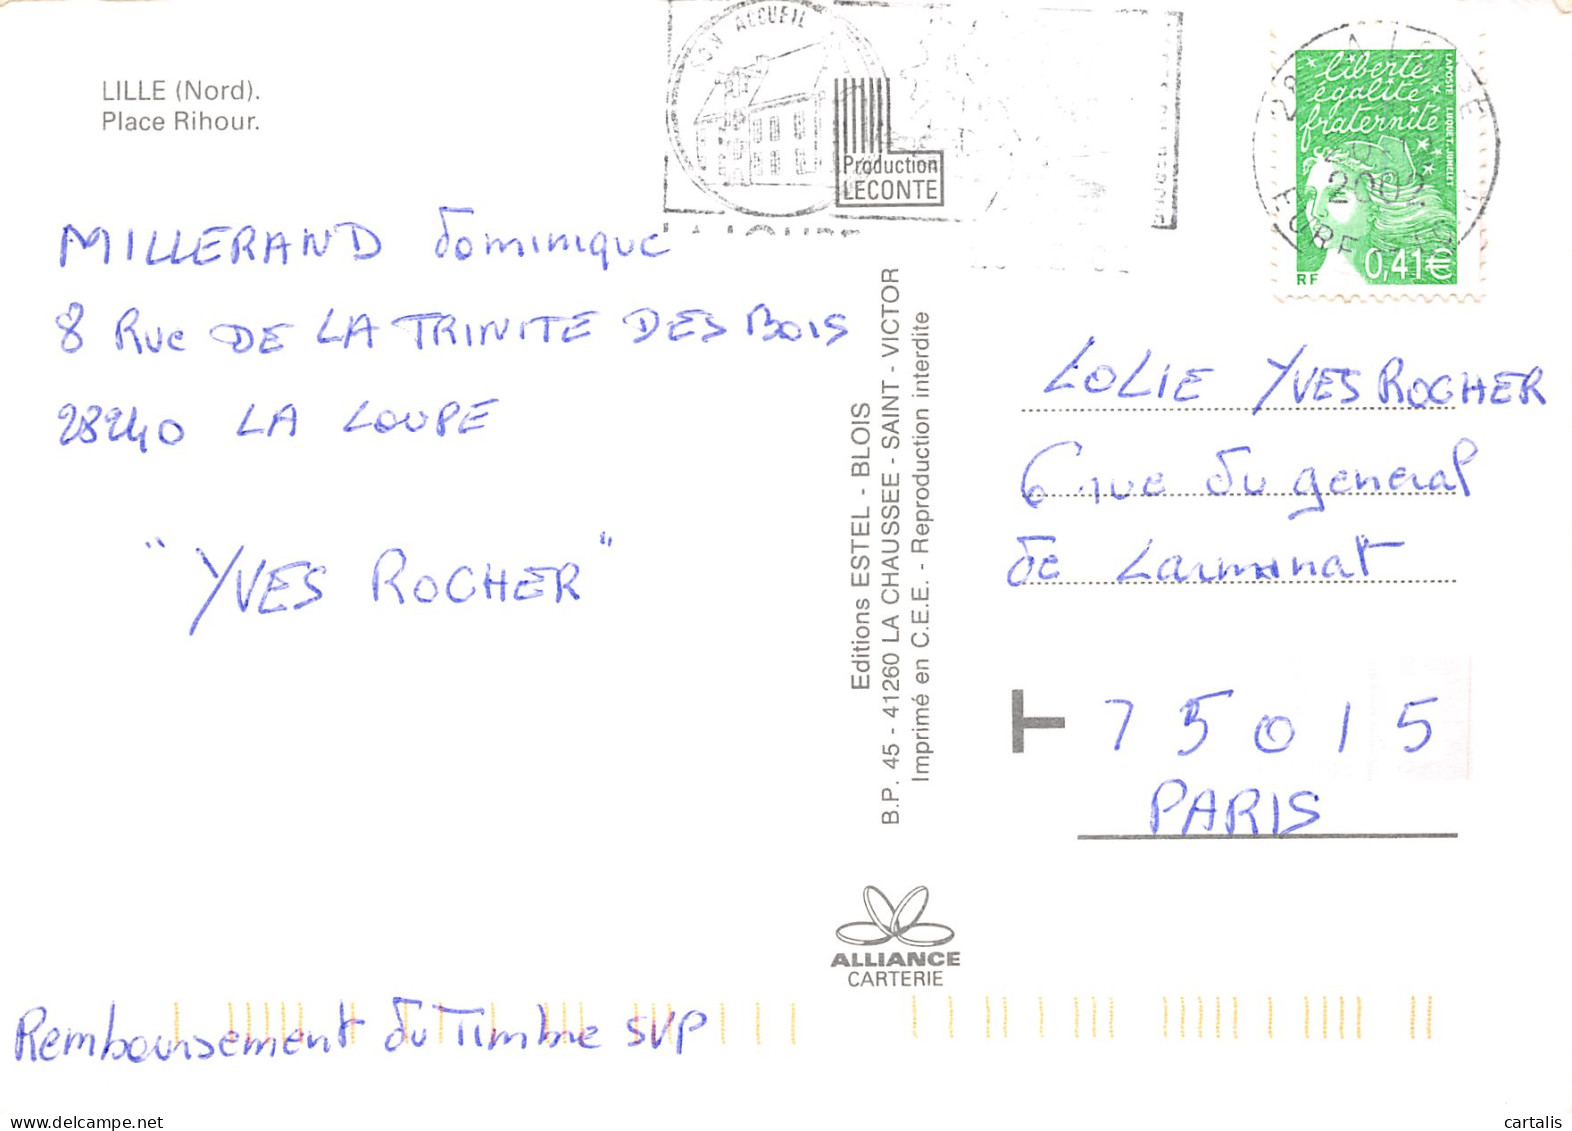 LILLE (Nord).
Place Rihour.
SON ACCUEIL
Production
LECONTE
LA LOUPE
28 LA LOUPE
2002
EURE
liberté
égalité
fraternité
LAPOSTE LUQUET.JUMELET
RF 0,41€
MILLERAND dominique
8 Rue DE LA TRINITE DES BOIS
28240 LA LOUPE
"YVES ROCHER"
Remboursement du Timbre SVP
Editions ESTEL - BLOIS
B.P. 45 - 41260 LA CHAUSSEE - SAINT - VICTOR
Imprimé en C.E.E. - Reproduction interdite
ALLIANCE
CARTERIE
LOLIE YVES ROCHER
6 rue du general
de Larminat
75015
PARIS
cartalis